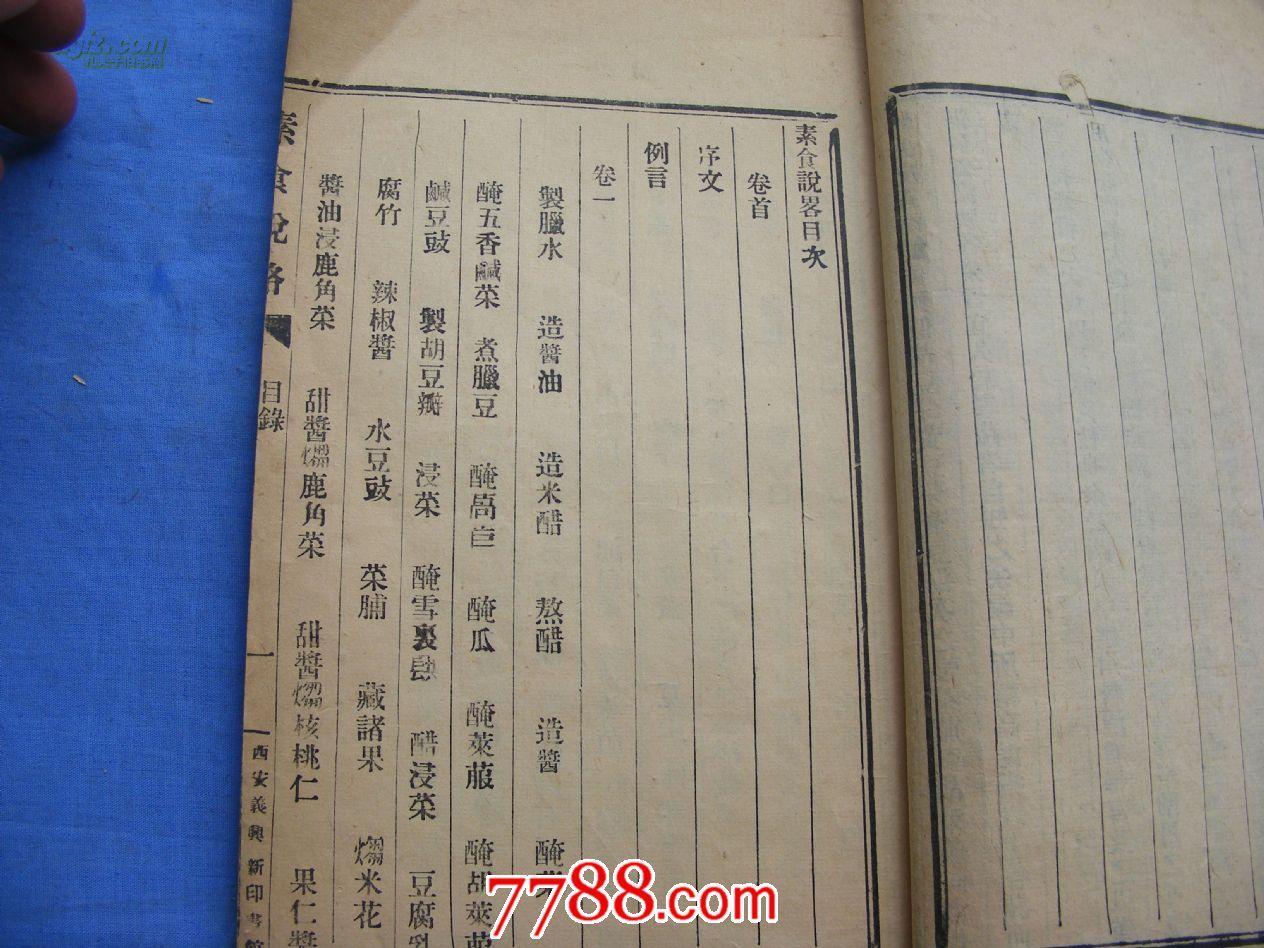 素食說畧目次
卷首
序文
例言
卷一
製臘水 造醬油 造米醋 熬醋 造醬 醃菜
醃五香鹹菜 煮臘豆 醃萵苣 醃瓜 醃萊菔 醃胡萊菔
鹹豆豉 製胡豆瓣 浸菜 醃雪裏 醋浸菜 豆腐乳
腐竹 辣椒醬 水豆豉 菜脯 藏諸果 米花
醬油浸鹿角菜 甜醬 鹿角菜 甜醬 核桃仁 果仁醬
素食說略 目錄 一 西安義興新印書館
7788.com